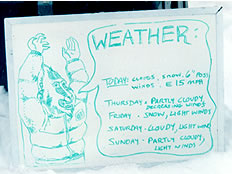 WEATHER:
TODAY: CLOUDS, SNOW, 6" POSS.
WINDS - E 15 MPH
THURSDAY - PARTLY CLOUDY
DECREASING WINDS
FRIDAY - SNOW, LIGHT WINDS
SATURDAY - CLOUDY, LIGHT WINDS
SUNDAY - PARTLY CLOUDY,
LIGHT WINDS